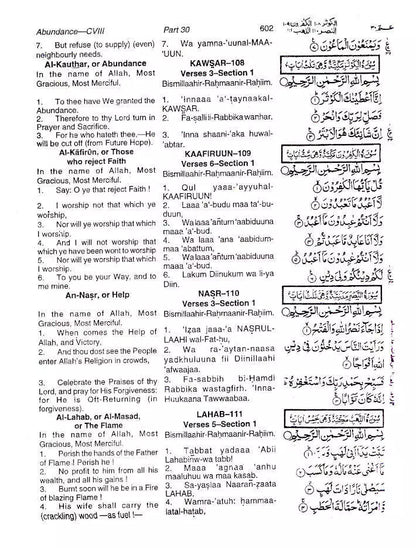 Abundance—CVIII
7. But refuse (to supply) (even)
neighbourly needs.
Al-Kauthar, or Abundance
In the name of Allah, Most
Gracious, Most Merciful.
1. To thee have We granted the
Abundance.
2. Therefore to thy Lord turn in
Prayer and Sacrifice.
3. For he who hateth thee.—He
will be cut off (from Future Hope).
Al-Kāfirūn, or Those
who reject Faith
In the name of Allah, Most
Gracious, Most Merciful.
1. Say: O ye that reject Faith !
2. I worship not that which ye
worship,
3. Nor will ye worship that which
I worship.
4. And I will not worship that
which ye have been wont to worship
5. Nor will ye worship that which
I worship.
6. To you be your Way, and to
me mine.
An-Naṣr, or Help
In the name of Allah, Most
Gracious, Most Merciful.
1. When comes the Help of
Allah, and Victory,
2. And thou dost see the People
enter Allah's Religion in crowds,
3. Celebrate the Praises of thy
Lord, and pray for His Forgiveness:
for He is Oft-Returning (in
forgiveness).
Al-Lahab, or Al-Masad,
or The Flame
In the name of Allah, Most
Gracious, Most Merciful.
1. Perish the hands of the Father
of Flame ! Perish he !
2. No profit to him from all his
wealth, and all his gains !
3. Burnt soon will he be in a Fire
of blazing Flame !
4. His wife shall carry the
(crackling) wood —as fuel !—
Part 30
602
7. Wa yamna-'uunal-MAA-
'UUN.
KAWṢAR–108
Verses 3–Section 1
Bismillaahir-Raḥmaanir-Raḥiim.
1. 'Innaaa 'a'-ṭaynaakal-
KAWṢAR.
2. Fa-ṣallii-Rabbika wanhar.
3. 'Inna shaani-'aka huwal-
'abtar.
KAAFIRUUN–109
Verses 6–Section 1
Bismillaahir-Raḥmaanir-Raḥiim.
1. Qul yaaa-'ayyuhal-
KAAFIRUUN!
2. Laaa 'a'-budu maa ta'-bu-
duun,
3. Wa laaa 'antum 'aabiduuna
maaa 'a'-bud.
4. Wa laaa 'ana 'aabidum-
maa 'abattum,
5. Wa laaa 'antum 'aabiduuna
maaa 'a-bud.
6. Lakum Diinukum wa li-ya
Diin.
NAṢR–110
Verses 3–Section 1
Bismillaahir-Raḥmaanir-Raḥiim.
1. 'Izaa jaaa-'a NAṢRUL-
LAAHI wal-Fat-ḥu,
2. Wa ra-'aytan-naasa
yadkhuluuna fii Diinillaahi
'afwaajaa.
3. Fa-sabbih bi-Hamdi
Rabbika wastagfirh. 'Inna-
Huukaana Tawwaabaa.
LAHAB–111
Verses 5–Section 1
Bismillaahir-Raḥmaanir-Raḥiim.
1. Tabbat yadaaa 'Abii
Lahabinw-wa tabb!
2. Maaa 'agnaa 'anhu
maaluhuu wa maa kasab.
3. Sa-yaṣlaa Naaran-zaata
LAHAB.
4. Wamra-'atuh: ḥammaa-
latal-ḥaṭab,
وَيَمْنَعُونَ الْمَاعُونَ
بِسْمِ اللهِ الرَّحْمٰنِ الرَّحِيْمِ
إِنَّا أَعْطَيْنَاكَ الْكَوْثَرَ
فَصَلِّ لِرَبِّكَ وَانْحَرْ
إِنَّ شَانِئَكَ هُوَ الْأَبْتَرُ
بِسْمِ اللهِ الرَّحْمٰنِ الرَّحِيْمِ
قُلْ يَا أَيُّهَا الْكَافِرُونَ
لَا أَعْبُدُ مَا تَعْبُدُونَ
وَلَا أَنْتُمْ عَابِدُونَ مَا أَعْبُدُ
وَلَا أَنَا عَابِدٌ مَا عَبَدْتُمْ
وَلَا أَنْتُمْ عَابِدُونَ مَا أَعْبُدُ
لَكُمْ دِينُكُمْ وَلِيَ دِينِ
بِسْمِ اللهِ الرَّحْمٰنِ الرَّحِيْمِ
إِذَا جَاءَ نَصْرُ اللهِ وَالْفَتْحُ
وَرَأَيْتَ النَّاسَ يَدْخُلُونَ فِي دِينِ
اللهِ أَفْوَاجًا
فَسَبِّحْ بِحَمْدِ رَبِّكَ وَاسْتَغْفِرْهُ
إِنَّهُ كَانَ تَوَّابًا
بِسْمِ اللهِ الرَّحْمٰنِ الرَّحِيْمِ
تَبَّتْ يَدَا أَبِي لَهَبٍ وَتَبَّ
مَا أَغْنَى عَنْهُ مَالُهُ وَمَا كَسَبَ
سَيَصْلَى نَارًا ذَاتَ لَهَبٍ
وَامْرَأَتُهُ حَمَّالَةَ الْحَطَبِ